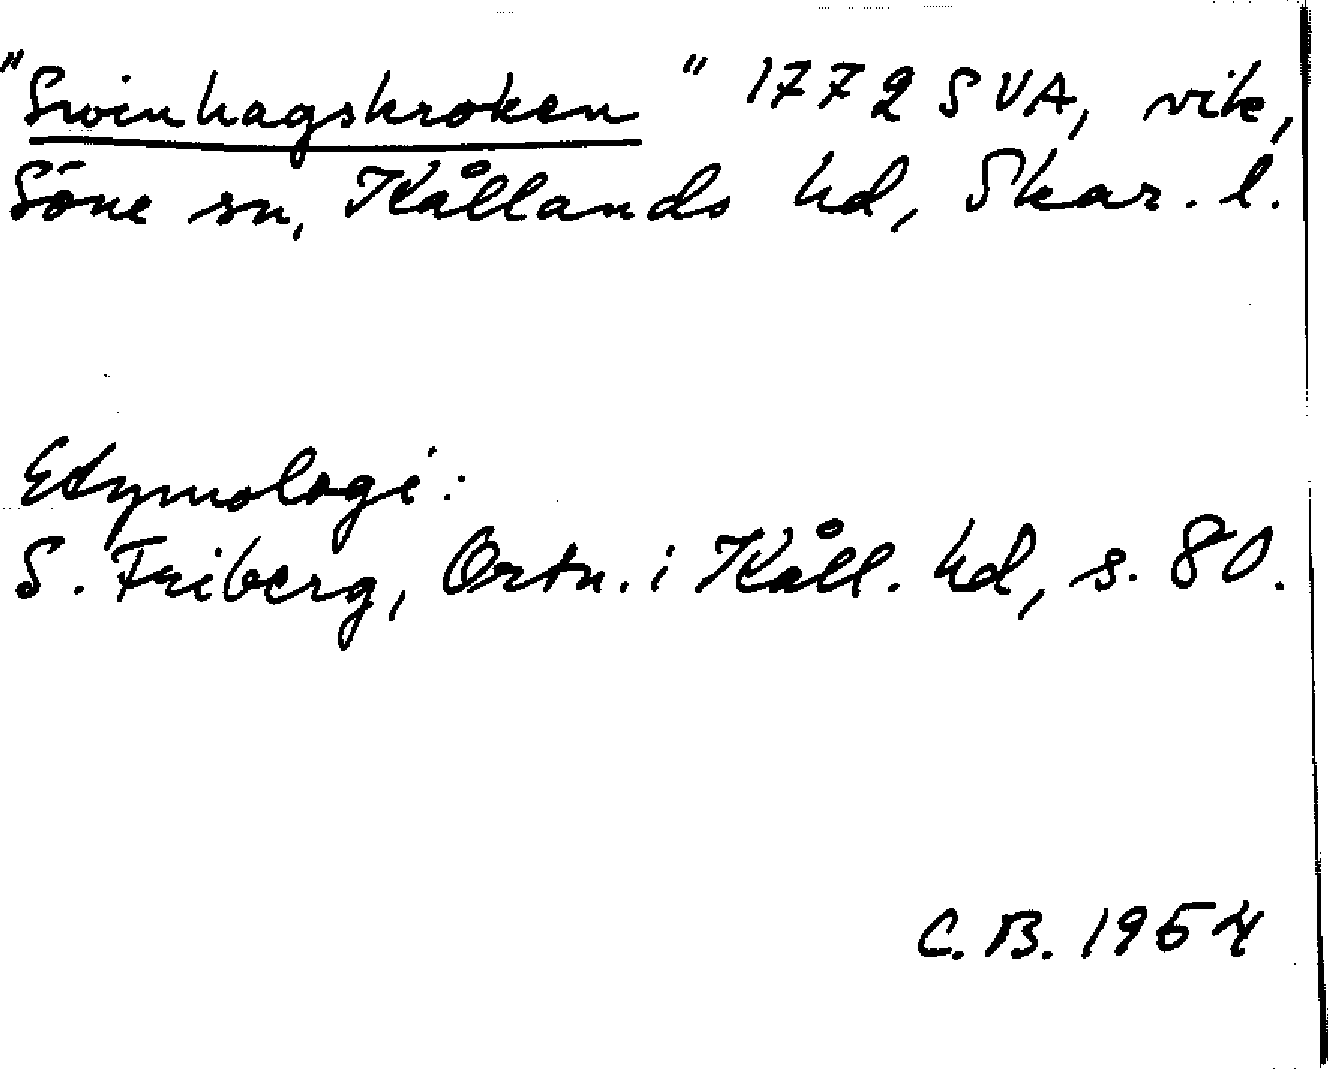 "Swinhagskroken" 1772 SVA, vik,
Söne sn, Kållands hd, Skar. l.
Etymologi:
S. Friberg, Ortn. i Kåll. hd, s. 80.
C. B. 1954